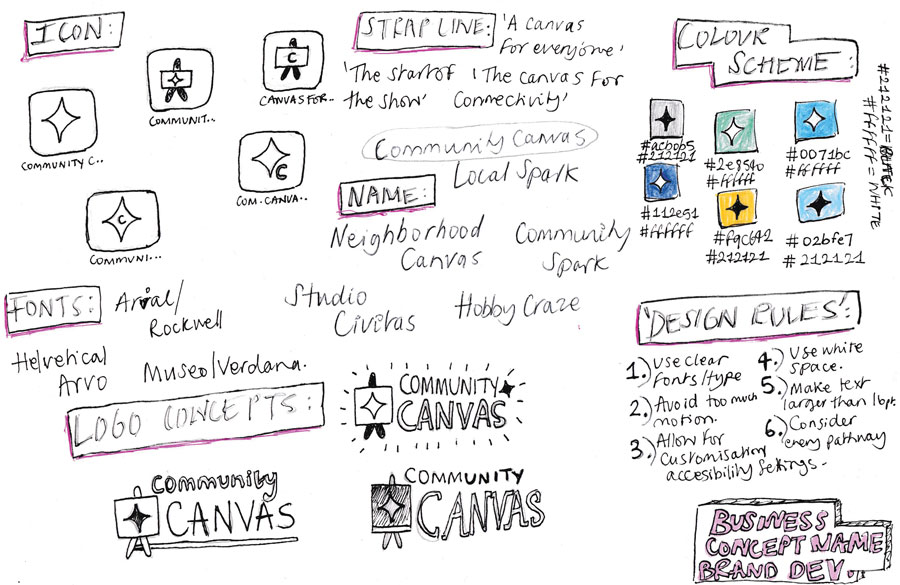 ICON:
COMMUNIT..
C
CANVAS FOR..
COMMUNITY C..
C
COM. CANVA..
C
COMMUNI...
STRAPLINE:
'A canvas
for everyone'
'The start of
the show'
'The canvas for
Connectivity'
Community Canvas
NAME:
Local Spark
Neighborhood
Canvas
Community
Spark
Studio
Civitas
Hobby Craze
COLOUR
SCHEME:
#212121=BLACK
#ffffff=WHITE
#acb0b5
#212121
#2e8540
#ffffff
#0071bc
#ffffff
#112e51
#ffffff
#f9c642
#212121
#02bfe7
#212121
FONTS:
Arial/
Rockwell
Helvetical
Arvo
Museo/Verdana.
LOGO CONCEPTS:
COMMUNITY
CANVAS
Community
CANVAS
COMMUNITY
CANVAS
'DESIGN RULES':
1.) Use clear
fonts/type
2.) Avoid too much
motion.
3.) Allow for
customisation
accesibility settings.
4.) Use white
space.
5.) Make text
larger than 16pt.
6.) Consider
every pathway
BUSINESS
CONCEPT NAME
BRAND DEV.